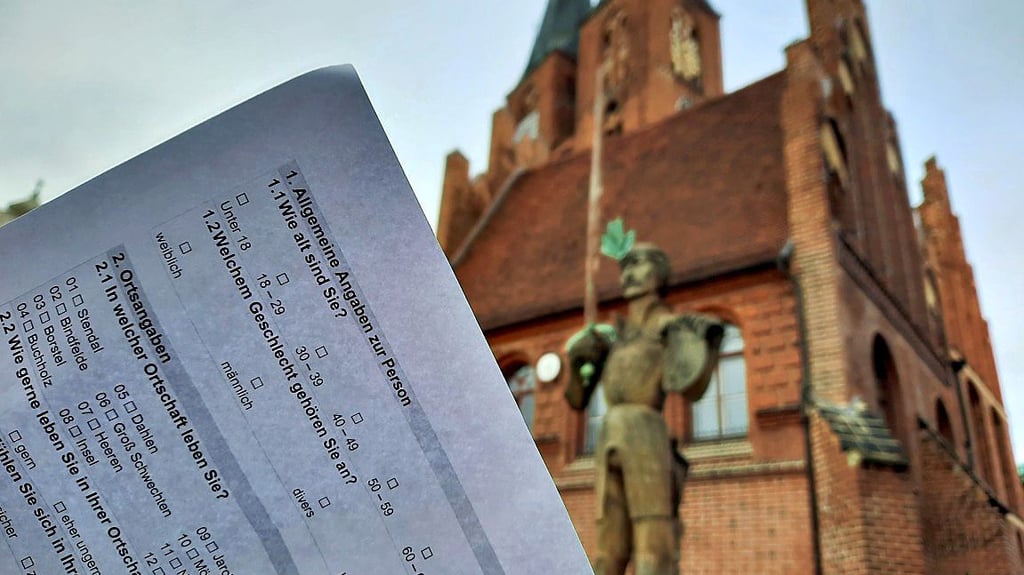 1. Allgemeine Angaben zur Person
1.1 Wie alt sind Sie?
Unter 18 18 - 29 30 - 39 40 - 49 50 - 59 60 -
1.2 Welchem Geschlecht gehören Sie an?
weiblich männlich divers
2. Ortsangaben
2.1 In welcher Ortschaft leben Sie?
01 Stendal 05 Dahlen 09
02 Bindfelde 06 Groß Schwechten 10
03 Borstel 07 Heeren 11
04 Buchholz 08 Insel 12
2.2 Wie gerne leben Sie in Ihrer
gern eher ungern
Sie sich in Ihrer